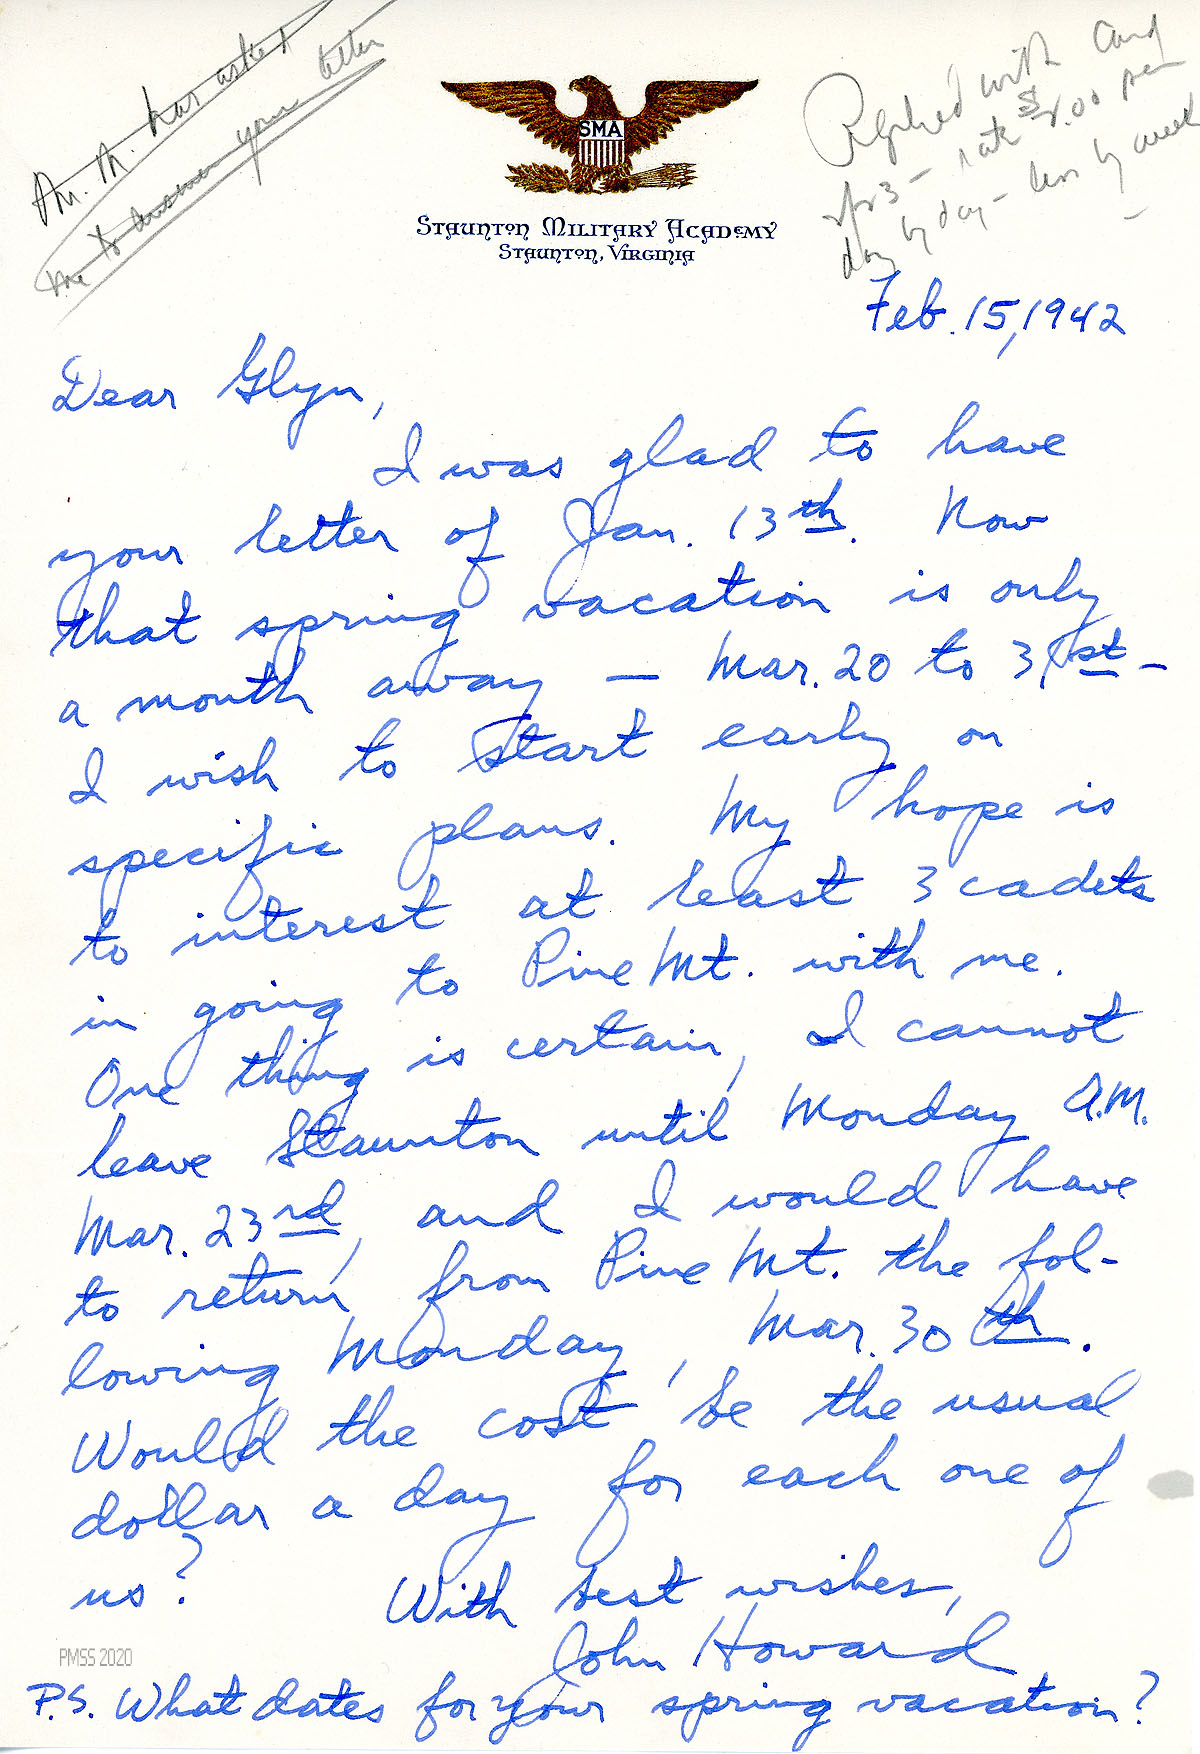 Mr. M. has asked
me to answer your letter
Replied with card
rate $2.00 per
day by day - less by week
SMA
Staunton Military Academy
Staunton, Virginia
Feb. 15, 1942
Dear Glyn,
I was glad to have
your letter of Jan. 13th. Now
that spring vacation is only
a month away — Mar. 20 to 31st -
I wish to start early on
specific plans. My hope is
to interest at least 3 cadets
in going to Pine Mt. with me.
One thing is certain, I cannot
leave Staunton until Monday A.M.
Mar. 23rd, and I would have
to return from Pine Mt. the fol-
lowing Monday, Mar. 30th.
Would the cost be the usual
dollar a day for each one of
us?
With best wishes,
John Howard
PMSS 2020
P.S. What dates for your spring vacation?